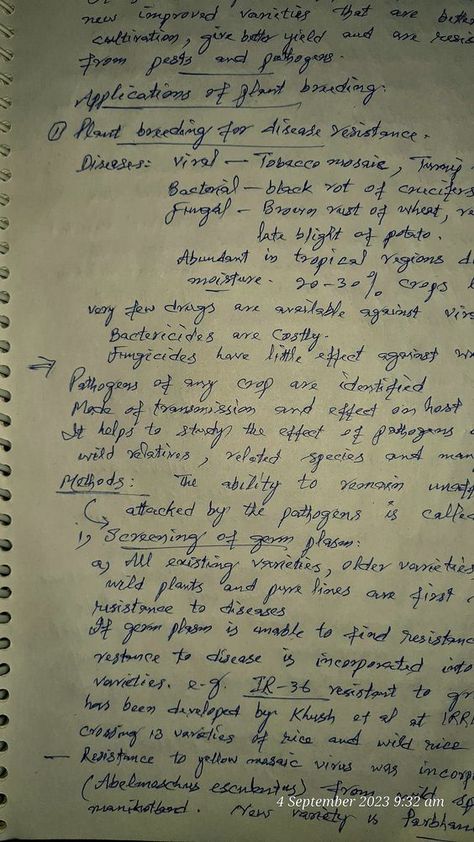 new improved varieties that are bette
cultivation, give better yield and are resis
from pests and pathogens.
Applications of plant breeding:
① Plant breeding for disease resistance.
Diseases: Viral – Tobacco mosaic, Turnip
Bacterial – black rot of crucifers
Fungal – Brown rust of wheat, re
late blight of potato.
Abundant in tropical regions d
moisture. 20-30% crops l
very few drugs are available against vir
Bactericides are costly.
Fungicides have little effect against
⇒
Pathogens of any crop are identified
Mode of transmission and effect on host
It helps to study the effect of pathogens
wild relatives, related species and man
Methods: The ability to remain unaff
attacked by the pathogens is calle
i) Screening of germ plasm:
a) All existing varieties, older varieties
wild plants and pure lines are first
resistance to diseases
If germ plasm is unable to find resistanc
resistance to disease is incorporated into
varieties. e.g. IR-36 resistant to gr
has been developed by Khush et al at IRRI
crossing 13 varieties of rice and wild rice
– Resistance to yellow mosaic virus was incorp
(Abelmoschus esculentus) from wild sp
New variety is Parbhan
4 September 2023 9:32 am